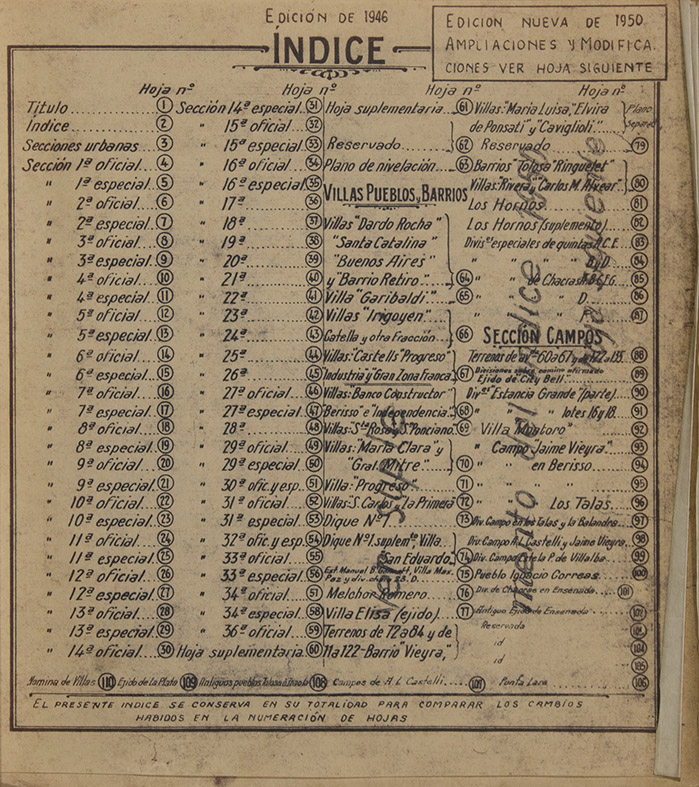 EDICIÓN DE 1946
EDICION NUEVA DE 1950
AMPLIACIONES Y MODIFICA.
CIONES VER HOJA SIGUIENTE
ÍNDICE
Hoja nº
Título 1
Indice 2
Secciones urbanas 3
Sección 1ª oficial 4
" 1ª especial 5
" 2ª oficial 6
" 2ª especial 7
" 3ª oficial 8
" 3ª especial 9
" 4ª oficial 10
" 4ª especial 11
" 5ª oficial 12
" 5ª especial 13
" 6ª oficial 14
" 6ª especial 15
" 7ª oficial 16
" 7ª especial 17
" 8ª oficial 18
" 8ª especial 19
" 9ª oficial 20
" 9ª especial 21
" 10ª oficial 22
" 10ª especial 23
" 11ª oficial 24
" 11ª especial 25
" 12ª oficial 26
" 12ª especial 27
" 13ª oficial 28
" 13ª especial 29
" 14ª oficial 30
Hoja nº
Sección 14ª especial 31
" 15ª oficial 32
" 15ª especial 33
" 16ª oficial 34
" 16ª especial 35
" 17ª 36
" 18ª 37
" 19ª 38
" 20ª 39
" 21ª 40
" 22ª 41
" 23ª 42
" 24ª 43
" 25ª 44
" 26ª 45
" 27ª oficial 46
" 27ª especial 47
" 28ª 48
" 29ª oficial 49
" 29ª especial 50
" 30ª ofic. y esp. 51
" 31ª oficial 52
" 31ª especial 53
" 32ª ofic. y esp. 54
" 33ª oficial 55
" 33ª especial 56
" 34ª oficial 57
" 34ª especial 58
" 36ª oficial 59
Hoja suplementaria 60
Hoja nº
Hoja suplementaria 61
Reservado 62
Plano de nivelación 63
VILLAS PUEBLOS y BARRIOS
Villas "Dardo Rocha"
"Santa Catalina"
"Buenos Aires"
y "Barrio Retiro" 64
Villa "Garibaldi" 65
Villas "Irigoyen"
Catella y otra fracción 66
Villas: "Castells" "Progreso"
Industria y Gran Zona Franca 67
Villas: "Banco Constructor"
Berisso" e "Independencia" 68
Villas: "Sta Rosa y S. Ponciano 69
Villas: "María Clara" y
"Gral. Mitre" 70
Villa "Progreso" 71
Villas: "S. Carlos", "La Primera" 72
Dique Nº 1 73
Dique Nº 1. suplemto Villa
San Eduardo 74
75
Melchor Romero 76
Villa Elisa (ejido) 77
Terrenos de 72 a 84 y de
11 a 122 - Barrio "Vieyra"
Hoja nº
Villas: "María Luisa", "Elvira
de Ponsati" y "Caviglioli"
Plano
Reservado 79
Barrios "Tolosa "Ringuelet"
Villas: "Rivera y Carlos M. Alvear" 80
Los Hornos 81
Los Hornos (suplemento) 82
Divisº especiales de quintas A.C.E. 83
" " " B y D 84
" " de Chacras 85
" " D 86
" " F 87
SECCIÓN CAMPOS
88
Ejido de City Bell 89
Divº "Estancia Grande" (parte) 90
" " lotes 16 y 18 91
Villa Montoro 92
" Campo "Jaime Vieyra" 93
" " en Berisso 94
" " " 95
" Los Talas 96
Div. Campo en los Talas y la Balandra 97
Div. Campo A. L. Castelli y Jaime Vieyra 98
Div. Campo de la P. de Villalba 99
Pueblo Ignacio Correas 100
Div. de Chacras en Ensenada 101
Antiguo Ejido de Ensenada 102
Reservada
id 104
id 105
Nomina de Villas 110 Ejido de la Plata 109 Antiguos pueblos Tolosa 108 Campos de A L Castelli Punta Lara 106
EL PRESENTE INDICE SE CONSERVA EN SU TOTALIDAD PARA COMPARAR LOS CAMBIOS
HABIDOS EN LA NUMERACIÓN DE HOJAS